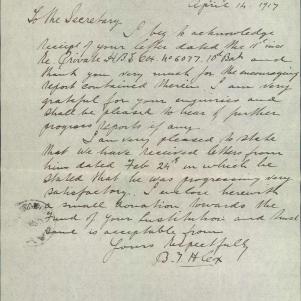 April 14. 1917
To The Secretary.
I beg to acknowledge
receipt of your letter dated the inst
Re Private H.B.E. Cox. No 6077. 10th Batt and
thank you very much for the encouraging
report contained therein. I am very
grateful for your enquiries and
shall be pleased to hear of further
progress reports if any.
I am very pleased to state
that we have received letters from
him dated Feb 24th in which he
stated that he was progressing very
satisfactory. I enclose herewith
a small donation towards the
Fund of your Institution and trust
same is acceptable from
Yours respectfully
B. T. H Cox